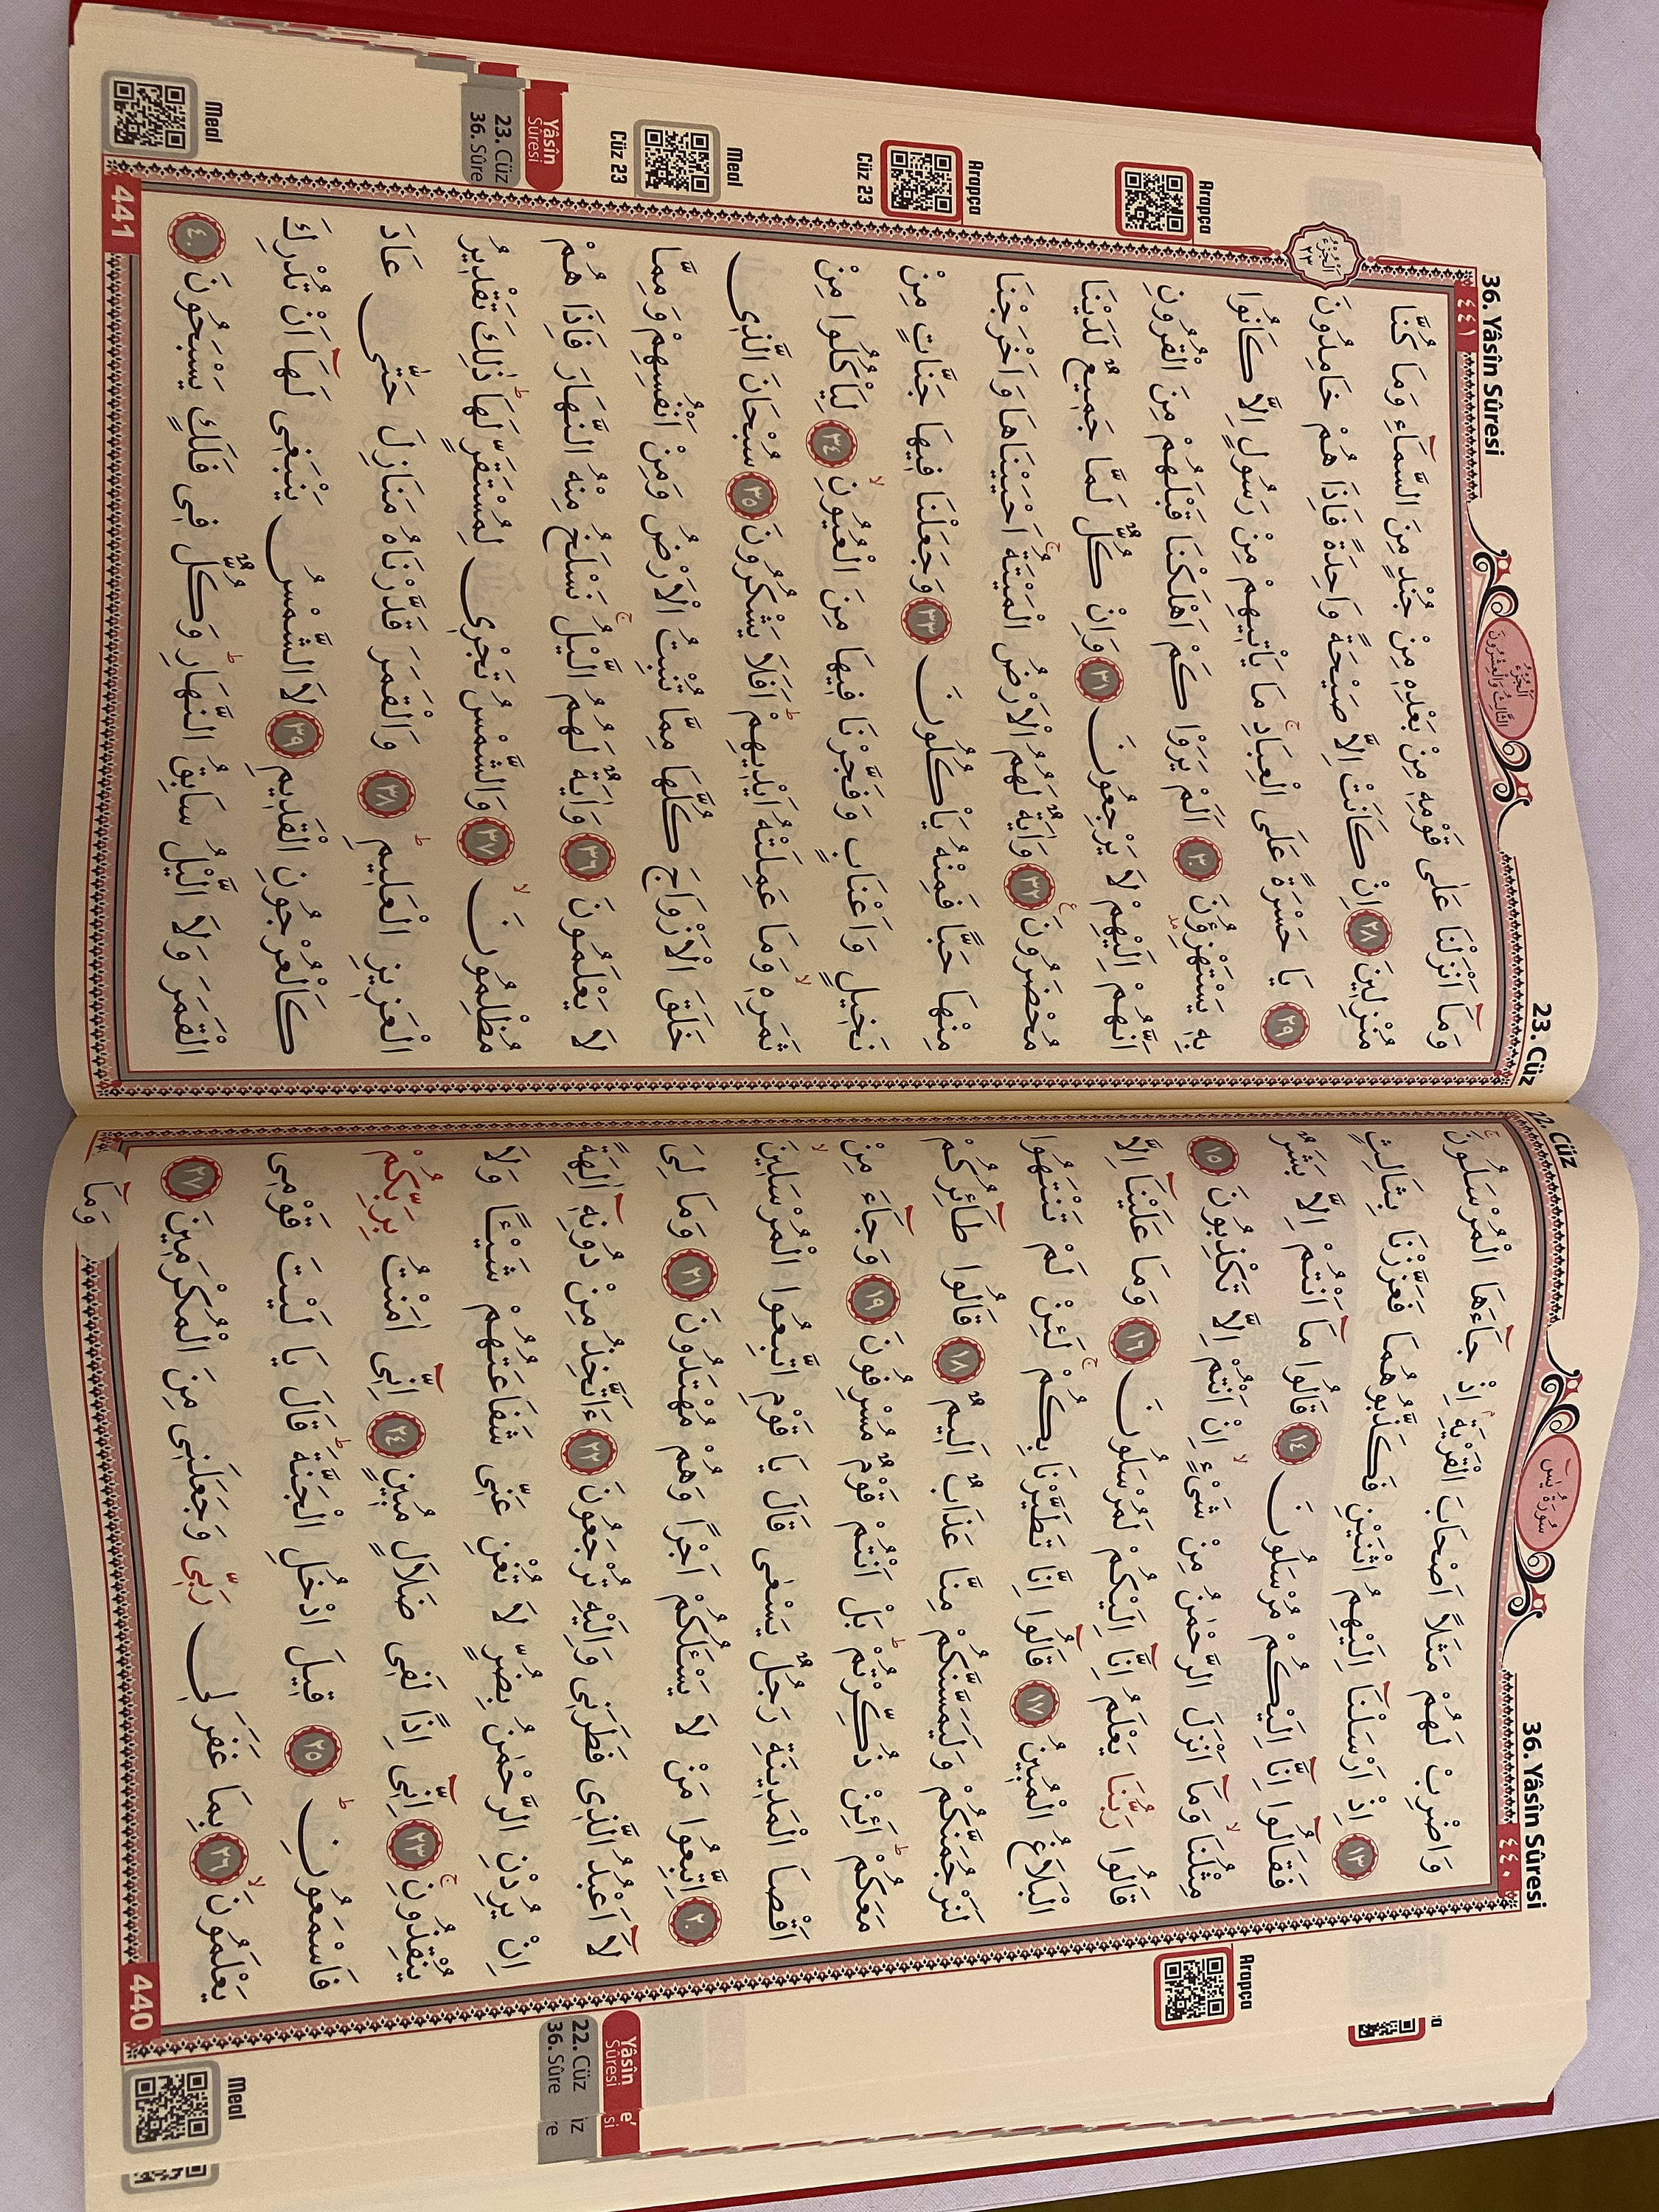 36. Yâsîn Sûresi
22. Cüz
٤٤٠
سُورَةُ يٰسٓ
وَاضْرِبْ لَهُمْ مَثَلًا اَصْحَابَ الْقَرْيَةِۢ اِذْ جَٓاءَهَا الْمُرْسَلُونَۚ
﴿١٣﴾ اِذْ اَرْسَلْنَٓا اِلَيْهِمُ اثْنَيْنِ فَكَذَّبُوهُمَا فَعَزَّزْنَا بِثَالِثٍ
فَقَالُٓوا اِنَّٓا اِلَيْكُمْ مُرْسَلُونَ ﴿١٤﴾ قَالُوا مَٓا اَنْتُمْ اِلَّا بَشَرٌ
مِثْلُنَاۙ وَمَٓا اَنْزَلَ الرَّحْمٰنُ مِنْ شَيْءٍۙ اِنْ اَنْتُمْ اِلَّا تَكْذِبُونَ ﴿١٥﴾
قَالُوا رَبُّنَا يَعْلَمُ اِنَّٓا اِلَيْكُمْ لَمُرْسَلُونَ ﴿١٦﴾ وَمَا عَلَيْنَٓا اِلَّا
الْبَلَاغُ الْمُبِينُ ﴿١٧﴾ قَالُٓوا اِنَّا تَطَيَّرْنَا بِكُمْۚ لَئِنْ لَمْ تَنْتَهُوا
لَنَرْجُمَنَّكُمْ وَلَيَمَسَّنَّكُمْ مِنَّا عَذَابٌ اَلِيمٌ ﴿١٨﴾ قَالُوا طَٓائِرُكُمْ
مَعَكُمْۜ اَئِنْ ذُكِّرْتُمْۜ بَلْ اَنْتُمْ قَوْمٌ مُسْرِفُونَ ﴿١٩﴾ وَجَٓاءَ مِنْ
اَقْصَا الْمَدِينَةِ رَجُلٌ يَسْعٰى قَالَ يَا قَوْمِ اتَّبِعُوا الْمُرْسَلِينَۙ
﴿٢٠﴾ اِتَّبِعُوا مَنْ لَا يَسْـَٔلُكُمْ اَجْرًا وَهُمْ مُهْتَدُونَ ﴿٢١﴾ وَمَا لِيَ
لَٓا اَعْبُدُ الَّذِي فَطَرَنِي وَاِلَيْهِ تُرْجَعُونَ ﴿٢٢﴾ ءَاَتَّخِذُ مِنْ دُونِهِٓ اٰلِهَةً
اِنْ يُرِدْنِ الرَّحْمٰنُ بِضُرٍّ لَا تُغْنِ عَنِّي شَفَاعَتُهُمْ شَيْـًٔا وَلَا
يُنْقِذُونِۚ ﴿٢٣﴾ اِنِّٓي اِذًا لَفِي ضَلَالٍ مُبِينٍ ﴿٢٤﴾ اِنِّٓي اٰمَنْتُ بِرَبِّكُمْ
فَاسْمَعُونِۜ ﴿٢٥﴾ قِيلَ ادْخُلِ الْجَنَّةَۜ قَالَ يَا لَيْتَ قَوْمِي
يَعْلَمُونَۙ ﴿٢٦﴾ بِمَا غَفَرَ لِي رَبِّي وَجَعَلَنِي مِنَ الْمُكْرَمِينَ ﴿٢٧﴾
وَمَٓا
440
Arapça
Yâsîn
Sûresi
22. Cüz
36. Sûre
Meal
36. Yâsîn Sûresi
23. Cüz
٤٤١
اَلْجُزْءُ
الثَّالِثُ وَالْعِشْرُونَ
اَلْجُزْءُ
٢٣
وَمَٓا اَنْزَلْنَا عَلٰى قَوْمِهِ مِنْ بَعْدِهِ مِنْ جُنْدٍ مِنَ السَّمَٓاءِ وَمَا كُنَّا
مُنْزِلِينَ ﴿٢٨﴾ اِنْ كَانَتْ اِلَّا صَيْحَةً وَاحِدَةً فَاِذَا هُمْ خَامِدُونَ
﴿٢٩﴾ يَا حَسْرَةً عَلَى الْعِبَادِۚ مَا يَأْتِيهِمْ مِنْ رَسُولٍ اِلَّا كَانُوا
بِهِ يَسْتَهْزِؤُنَ ﴿٣٠﴾ اَلَمْ يَرَوْا كَمْ اَهْلَكْنَا قَبْلَهُمْ مِنَ الْقُرُونِ
اَنَّهُمْ اِلَيْهِمْ لَا يَرْجِعُونَ ﴿٣١﴾ وَاِنْ كُلٌّ لَمَّا جَمِيعٌ لَدَيْنَا
مُحْضَرُونَ۟ ﴿٣٢﴾ وَاٰيَةٌ لَهُمُ الْاَرْضُ الْمَيْتَةُۚ اَحْيَيْنَاهَا وَاَخْرَجْنَا
مِنْهَا حَبًّا فَمِنْهُ يَأْكُلُونَ ﴿٣٣﴾ وَجَعَلْنَا فِيهَا جَنَّاتٍ مِنْ
نَخِيلٍ وَاَعْنَابٍ وَفَجَّرْنَا فِيهَا مِنَ الْعُيُونِۙ ﴿٣٤﴾ لِيَأْكُلُوا مِنْ
ثَمَرِهِۙ وَمَا عَمِلَتْهُ اَيْدِيهِمْۜ اَفَلَا يَشْكُرُونَ ﴿٣٥﴾ سُبْحَانَ الَّذِي
خَلَقَ الْاَزْوَاجَ كُلَّهَا مِمَّا تُنْبِتُ الْاَرْضُ وَمِنْ اَنْفُسِهِمْ وَمِمَّا
لَا يَعْلَمُونَ ﴿٣٦﴾ وَاٰيَةٌ لَهُمُ الَّيْلُۚ نَسْلَخُ مِنْهُ النَّهَارَ فَاِذَا هُمْ
مُظْلِمُونَۙ ﴿٣٧﴾ وَالشَّمْسُ تَجْرِي لِمُسْتَقَرٍّ لَهَاۜ ذٰلِكَ تَقْدِيرُ
الْعَزِيزِ الْعَلِيمِۜ ﴿٣٨﴾ وَالْقَمَرَ قَدَّرْنَاهُ مَنَازِلَ حَتّٰى عَادَ
كَالْعُرْجُونِ الْقَدِيمِ ﴿٣٩﴾ لَا الشَّمْسُ يَنْبَغِي لَهَٓا اَنْ تُدْرِكَ
الْقَمَرَ وَلَا الَّيْلُ سَابِقُ النَّهَارِۜ وَكُلٌّ فِي فَلَكٍ يَسْبَحُونَ ﴿٤٠﴾
441
Arapça
Arapça
Cüz 23
Meal
Cüz 23
Yâsîn
Sûresi
23. Cüz
36. Sûre
Meal